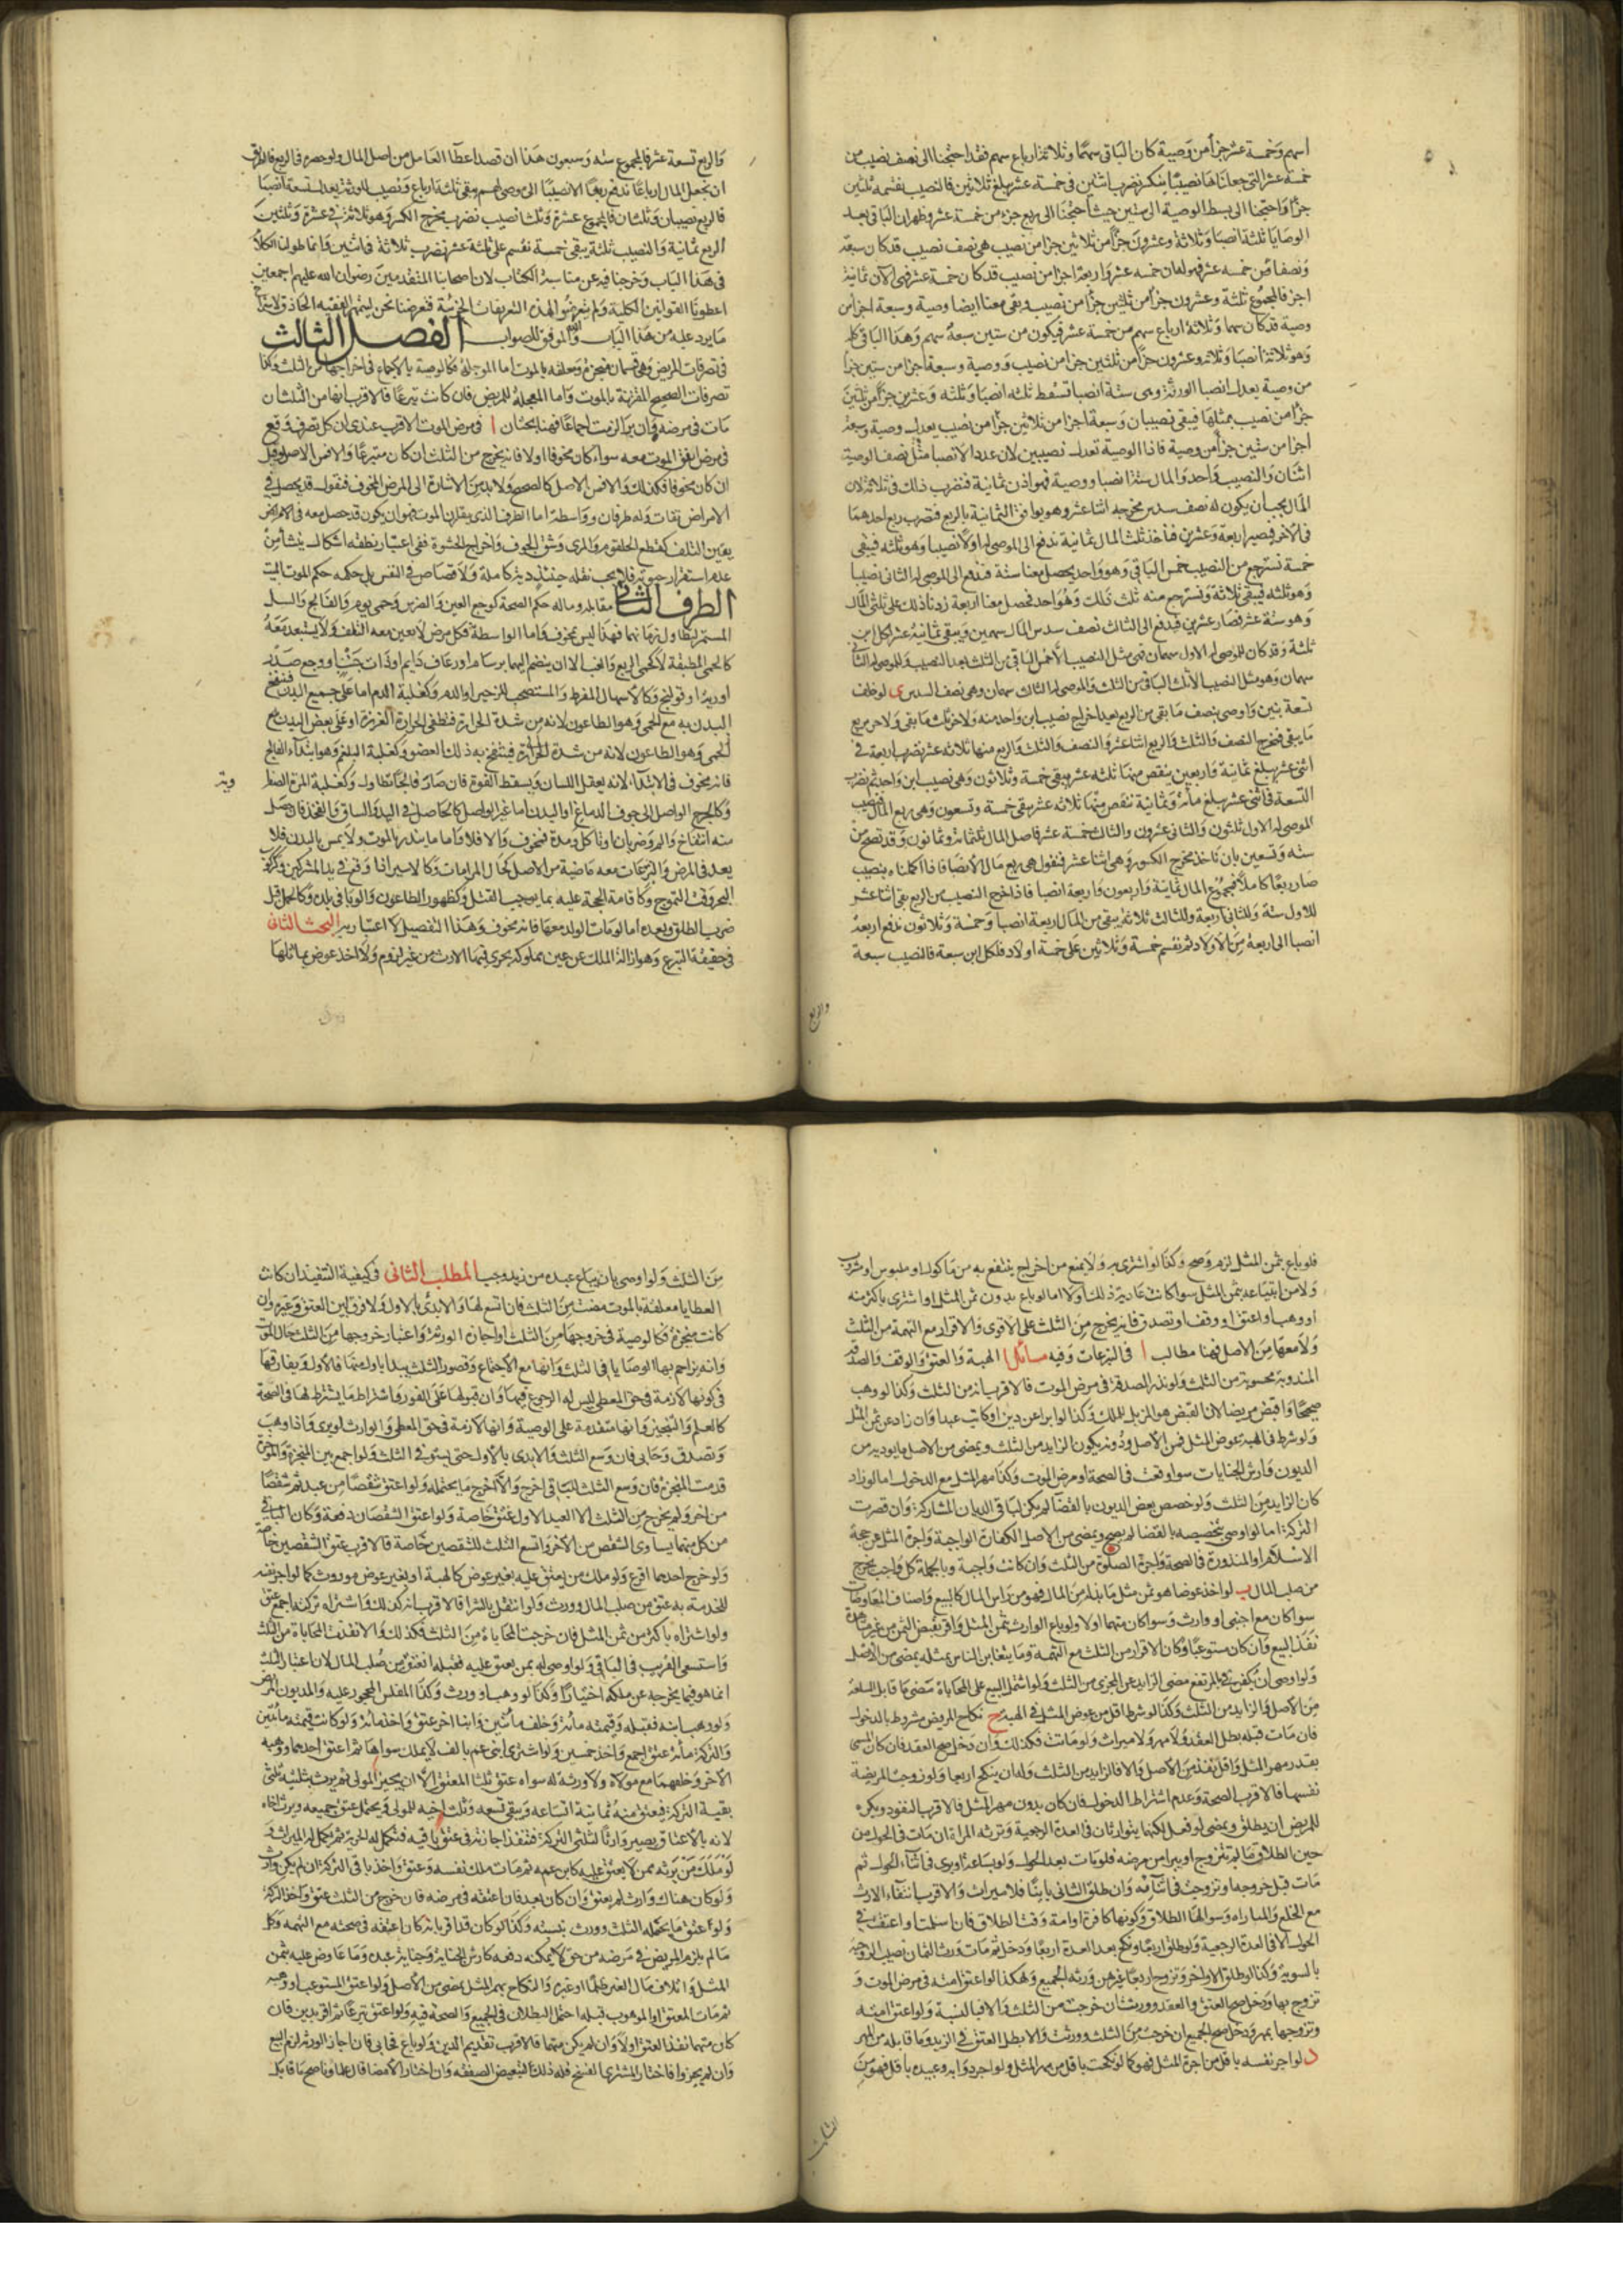 اسهم وخمسة عشر جزأ من وصية كان الباقى سهما وثلاثة ارباع سهم فقد احتجنا الى نصف نصيب من
خمسة عشر التى جعلناها نصيبا ينكسر نضرب اثنين فى خمسة عشر يبلغ ثلاثين فالنصيب بقسمه ثلثين
جزأ واحتجنا الى بسط الوصية الى ستين حيث احتجنا الى ربع جزء من خمسة عشر وظهر ان الباقى بعد
الوصايا ثلثة انصبا وثلاثة وعشرون جزأ من ثلاثين جزأ من نصيب هى نصف نصيب قد كان سبعة
ونصفا من خمسه عشر
اجزا فالمجموع ثلثة وعشرون جزأ من ثلثين جزأ من نصيب وبقى معنا ايضا وصية وسبعة اجزأ من
وصية قد كان سهما وثلاثة ارباع سهم من خمسة عشر فيكون من ستين سبعة سهم وهذا الباقى كله
وهو ثلاثة انصبا وثلاثه وعشرون جزأ من ثلثين جزا من نصيب ووصية وسبعة اجزا من ستين جزأ
من وصية يعدل انصبا الورثة وهى ستة انصبا تسقط ثلثه انصبا وثلثه وعشرين جزأ من ثلثين
جزأ من نصيب بمثلها فيبقى نصيبان وسبعة اجزا من ثلاثين جزأ من نصيب يعدل وصية وسبعة
اجزا من ستين جزأ من وصية فاذا الوصية تعدل نصيبين لان عدد الانصبا مثل نصف الوصية
اثنان والنصيب واحد والمال ستة انصبا ووصية فهو اذن ثمانية فنضرب ذلك فى ثلاثة لان
المال يجب ان يكون له نصف سدس مخرجه اثنا عشر وهو يوافق الثمانية بالربع فتضرب ربع احدهما
فى الاخر فيصير اربعة وعشرين فناخذ ثلث المال ثمانية ندفع الى الموصى له اولا نصيبا وهو ثلثه فيبقى
خمسة نسترجع من النصيب خمس الباقى وهو واحد يحصل معنا ستة فندفع الى الموصى له الثانى نصيبا
وهو ثلثه فيبقى ثلاثة ونسترجع منه ثلث ذلك وهو واحد فحصل معنا اربعة زدنا ذلك على ثلثى المال
وهو ستة عشر فصار عشرين فيدفع الى الثالث نصف سدس المال سهمين ويبقى ثمانية عشر لكل ابن
ثلثة وقد كان للموصى له الاول سهمان فهى مثل النصيب الا خمس الباقى من الثلث بعد النصيب وللموصى له الثانى
سهمان وهو مثل النصيب الا ثلث الباقى من الثلث والموصى له الثالث سهمان وهى نصف السدس ى لو خلف
تسعة بنين واوصى بنصف ما بقى من الربع بعد اخراج نصيب ابن واحد منه ولاخر ثلث ما بقى ولاخر بربع
ما يبقى فمخرج النصف والثلث والربع اثنا عشر والنصف والثلث والربع منها ثلاثه عشر نضرب اربعة فى
اثنى عشر يبلغ ثمانية واربعين ينقص منها ثلثه عشر يبقى خمسة وثلاثون وهى نصيب ابن واحد ثم نضرب
التسعة فى اثنى عشر يبلغ مائة وثمانية ننقص منها ثلاثه عشر يبقى خمسة وتسعون وهى ربع المال فنصيب
الموصى له الاول ثلثون والثانى عشرون والثالث خمسة عشر فاصل المال ثلثمائة وثمانون وقد تصح من
سته وتسعين بان ناخذ مخرج الكسور وهى اثنا عشر فنقول هى ربع مال الا نصبا فاذا اكملناه بنصيب
صار ربعا كاملا فمجموع المال ثمانية واربعون واربعة انصبا فاذا اخرج النصيب من الربع بقى اثنا عشر
للاول ستة وللثانى اربعة وللثالث ثلاثة يبقى من المال اربعة انصبا وخمسة وثلاثون ندفع اربعة
انصبا الى اربعة من الاولاد ثم نقسم خمسة وثلاثين على خمسة اولاد فلكل ابن سبعة فالنصيب سبعة
والربع
والربع تسعة عشر فالمجموع سته وسبعون هذا ان قصد اعطآ العامل من اصل المال ولو حصره فى الربع فالطريق
ان نجعل المال ارباعا ندفع ربعا الا نصيبا الى وصى لهم يبقى ثلثة ارباع ونصيب للورثة يعدل تسعة انصبا
فالربع نصيبان وثلثان فالمجموع عشرة وثلثا نصيب نضرب مخرج الكسر وهو ثلاثة فى عشرة وثلثين
الربع ثمانية والنصيب ثلثة يبقى خمسة نقسم على ثلثة عشر نضرب ثلاثة
فى هذا الباب وخرجنا فيه عن مناسبة الكتاب لان اصحابنا المتقدمين رضوان الله عليهم اجمعين
اعطونا القوانين الكلية ولم يتعرضوا لهذه التفريعات الجزئية فتعرضنا نحن ليتمهر الفقيه الحاذق لاستخراج
ما يرد عليه من هذا الباب والله الموفق للصواب الفصل الثالث
فى تصرفات المريض وهى قسمان منجزة ومعلقه بالموت اما الموجلة فكالوصية بالاجماع فى اخراجها من الثلث وكذا
تصرفات الصحيح المقترنة بالموت واما المعجلة للمريض فان كانت تبرعا فالاقرب انها من الثلث ان
مات فى مرضه وان برا لزمت اجماعا فهنا بحثان ا فى مرض الموت الاقرب عندى ان كل تصرف وقع
فى مرض اتفق الموت معه سواء كان مخوفا اولا فانه يخرج من الثلث ان كان متبرعا والا فمن الاصل وقيل
ان كان مخوفا فكذلك والا فمن الاصل كالصحيح ولا بد من الاشارة الى المرض المخوف فنقول قد يحصل فى
الامراض تفاوت وله طرفان وواسطة اما الطرف الذى يقارن الموت فهو ان يكون قد حصل معه فى الامراض
يقين التلف كقطع الحلقوم والمرى وشق الجوف واخراج الحشوة ففى اعتبار نطقه اشكال ينشأ من
عدم استقرار حيوته فلا يجب بقتله حينئذ دية كاملة ولا قصاص فى النفس بل حكمه حكم الموت الميت
الطرف الثانى مقابله وماله حكم الصحة كوجع العين والضرس وحمى يوم والفالج والسل
المستمر لتطاول زمانهما فهذا ليس بمخوف واما الواسطة فكل مرض لا يعين معه التلف ولا يستبعد معه
كالحمى المطبقة لا كحمى الربع والغب الا ان ينضم اليهما برسام او رعاف دايم او ذات جنب او وجع صدر
او رية او قولنج وكالاسهال المفرط والمستصحب للزحير او الدم وكغلبة الدم اما على جميع البدن فينتفخ
البدن به مع الحمى وهو الطاعون لانه من شدة الحرارة فتطفى الحرارة الغريزة او على بعض البدن مع
الحمى وهو الطاعون لانه من شدة الحرارة فينتفخ به ذلك العضو وكغلبة البلغم وهو ابتدآء الفالج
فانه مخوف فى الابتدآ لانه يعقل اللسان ويسقط القوة فان صار فالجا تطاول وكغلبة المرة الصفرا
وكالجرح الواصل الى جوف الدماغ او البدن اما غير الواصل كالحاصل فى اليد والساق والفخذ فان حصل
منه انتفاخ والم وضربان او تاكل ومدة فمخوف والا فلا واما ما ينذر بالموت ولا يمس بالبدن فلا
يعد فى المرض والتبرعات معه ماضية من الاصل كحال المرامات وكالاسير اذا وقع فى يد المشركين وكركوب
البحر وقت التموج وكاقامة الحجة عليه بما يوجب القتل وكظهور الطاعون والوبا فى بلده وكالحمل قبل
ضرب الطلق وبعده اما لو مات الولد معها فانه مخوف وهذا التفصيل لا اعتبار به البحث الثانى
فى حقيقة التبرع وهو ازالة الملك عن عين مملوكة يجرى فيها الارث من غير لزوم ولا اخذ عوض يماثلها
فلو باع بثمن المثل لزم وصح وكذا لو اشترى به ولا يمنع من اخراج ينتفع به من ماكول او ملبوس او مشروب
ولا من ابتياعه بثمن المثل سوا كانت عادته ذلك اولا اما لو باع بدون ثمن المثل او اشترى باكثر منه
او وهب او اعتق او وقف او تصدق فانه يخرج من الثلث على الاقوى والاقرار مع التهمة من الثلث
ولا معها من الاصل فهنا مطالب ا فى التبرعات وفيه مسائل ا الهبة والعتق والوقف والصدقة
المندوبة محسوبة من الثلث ولو نذر الصدقة فى مرض الموت فالاقرب انه من الثلث وكذا لو وهب
صحيحا واقبض مريضا لان القبض هو المزيل للملك وكذا لو ابرا عن دين او كاتب عبدا وان زاد عن ثمن المثل
ولو شرط فى الهبة عوض المثل فمن الاصل ودونه يكون الزايد من الثلث ويمضى من الاصل ما يوديه من
الديون وارش الجنايات سوا وقعت فى الصحة او مرض الموت وكذا مهر المثل مع الدخول اما لو زاد
كان الزايد من الثلث ولو خصص بعض الديون بالقضآ لم يكن لباقى الديان المشاركة وان قصرت
التركة اما لو اوصى بتخصيصه بالقضا لم يصح ويمضى من الاصل الكفارة الواجبة واجرة المثل عن حجة
الاسلام او المنذورة فى الصحة واجرة الصلوة من الثلث وان كانت واجبة وبالجملة كل واجب يخرج
من صلب المال ب لو اخذ عوضا هو ثمن مثل ما بذله من المال فهو من راس المال كالبيع واصناف المعاوضات
سوا كان مع اجنبى او وارث وسوا كان متهما اولا ولو باع الوارث بثمن المثل واقر بقبض الثمن من غير مشاهدة
نفذ البيع وان كان مستوعبا وكان الاقرار من الثلث مع التهمة وما يتغابن الناس بمثله يمضى من الاصل
ولو اوصى ان يكفر فى بالمرتفع مضى الزايد عن المجزى من الثلث ولو اشتمل البيع على المحاباة مضى ما قابل السلعة
من الاصل والزايد من الثلث وكذا لو شرط اقل من عوض المثل فى الهبة ج نكاح المريض مشروط بالدخول
فان مات قبله بطل العقد ولا مهر ولا ميراث ولو ماتت فكذلك وان دخل صح العقد فان كان المسمى
بقدر مهر المثل واقل نفذ من الاصل والا فالزايد من الثلث وله ان ينكح اربعا ولو زوجت المريضة
نفسها فالاقرب الصحة وعدم اشتراط الدخول فان كان بدون مهر المثل فالاقرب النفوذ ويكره
للمريض ان يطلق ويمضى لو فعل لكنهما يتوارثان فى العدة الرجعية وترثه المراة ان مات فى الحول من
حين الطلاق ما لم تتزوج او يبرا من مرضه فلو مات بعد الحول ولو بساعة او برى فى اثنآء الحول ثم
مات قبل خروجه او تزوجت فى اثنائه وان طلق الثانى باينا فلا ميراث والاقرب انتفاء الارث
مع الخلع والمباراه وسوالها الطلاق وكونها كافرة او امة وقت الطلاق فان اسلمت او اعتقت فى
الحول الا فى العدة الرجعية ولو طلق اربعا ونكح بعد العدة اربعا ودخل ثم مات ورث الثمان نصيب الزوجية
بالسوية وكذا لو طلق الاواخر وتزوج اربعا غيرهن ورثه الجميع وهكذا لو اعتق امته فى مرض الموت و
تزوج بها ودخل صح العتق والعقد وورثت ان خرجت من الثلث والا فبالنسبة ولو اعتق امته
وتزوجها بمهر ودخل صح الجميع ان خرجت من الثلث وورثت والا بطل العتق فى الزيد وما قابله من المهر
د لو اجر نفسه باقل من اجرة المثل فهو كما لو نكحت باقل من مهر المثل ولو اجر دوابه وعبيده باقل فهو من
الثلث
من الثلث ولو اوصى بان يباع عبده من زيد وجب المطلب الثانى فى كيفية التنفيذ ان كانت
العطايا معلقة بالموت مضت من الثلث فان اتسع لها والا بدئ بالاول ولا فرق بين العتق وغيره وان
كانت منجزة فكالوصية فى خروجها من الثلث او اجازة الورثة واعتبار خروجها من الثلث حال الموت
وانه يزاحم بها الوصايا فى الثلث وانها مع الاجتماع وقصور الثلث يبدا باول منها فالاول ويفارقها
فى كونها لازمة فى حق المعطى ليس له الرجوع فيها وان قبولها على الفور واشتراط ما يشترط لها فى الصحة
كالعلم والتنجيز وانها متقدمة على الوصية وانها لازمة فى حق المعطى والوارث لو برى واذا وهب
وتصدق وحابى فان وسع الثلث والا بدى بالاول حتى يستوفى الثلث ولو جمع بين المنجزة والموخرة
قدمت المنجزة فان وسع الثلث للباقى اخرج والا اخرج ما يحتمله ولو اعتق شقصا من عبد ثم شقصا
من اخر ولم يخرج من الثلث الا العبد الاول عتق خاصة ولو اعتق الشقصان دفعة وكان الباقى
من كل منهما يساوى الشقص من الاخر واتسع الثلث للشقصين خاصة فالاقرب عتق الشقصين خاصة
ولو خرج احدهما اقرع ولو ملك من يعتق عليه بغير عوض كالهبة او بغير عوض موروث كما لو اجر نفسه
للخدمة به عتق من صلب المال وورث ولو انتقل بالشرا فالاقرب انه كذلك واشتراه تركته اجمع عتق
ولو اشتراه باكثر من ثمن المثل فان خرجت المحاباة من الثلث فكذلك والا نفذت المحاباة من الثلث
واستسعى القريب فى الباقى ولو اوصى له بمن يعتق عليه فقبله انعتق من صلب المال لان اعتبار الثلث
انما هو فيما يخرجه عن ملكه اختيارا وكذا لو وهب او ورث وكذا المفلس المحجور عليه والمديون المريض
ولو وهب ابنه فقبله وقيمته مائة وخلف مائتين وابنا اخر عتق واخذ مائة ولو كانت قيمته مائتين
والتركة مائة عتق اجمع واخذ خمسين ولو اشترى ابنى عم بالف لا يملك سواها ثم اعتق احدهما ووهبه
الاخر وخلفهما مع مولاه ولا ورثة له سواه عتق ثلثا المعتق الا ان يجيز المولى ثم يرث بثلثيه ثلثى
بقية التركة فيعتق منه ثمانية اتساعه ويبقى تسعه وثلث اخيه للمولى ويحتمل عتق جميعه ويرث اخاه
لانه بالاعتاق يصير وارثا لثلثى التركة فتنفذ اجازته فى عتق باقيه فتكمل له الحرية ثم يكمل له الميراث و
لو ملك من يرثه ممن لا يعتق عليه كابن عمه ثم مات ملك نفسه وعتق واخذ باقى التركة ان لم يكن وارث
ولو كان هناك وارث لم يعتق وان كان بعد فان اعتقه فى مرضه فان خرج من الثلث عتق واخذ التركة
ولو عتق ما يحتمله الثلث وورث بنسبته وكذا لو كان قد اقر بانه كان اعتقه فى صحته مع التهمه وكل
ما لم يلزم المريض فى مرضه من حق لا يمكنه دفعه كارش الجناية وجناية عبده وما عاوض عليه بثمن
المثل واتلاف مال الغير ظلما او غيره والنكاح بمهر المثل يمضى من الاصل ولو اعتق المستوعب او وهبه
ثم مات المعتق او الموهوب قبله احتمل البطلان فى الجميع والصحة فيه ولو اعتق تبرعا ثم اقر بدين فان
كان متهما نفذ العتق اولا وان لم يكن متهما فالاقرب تقديم الدين ولو باع فحابى فان اجاز الورثة لزم البيع
وان لم يجيزوا فاختار المشترى الفسخ فله ذلك لتبعيض الصفقة وان اختار الامضا قال علماونا صح ما قابل